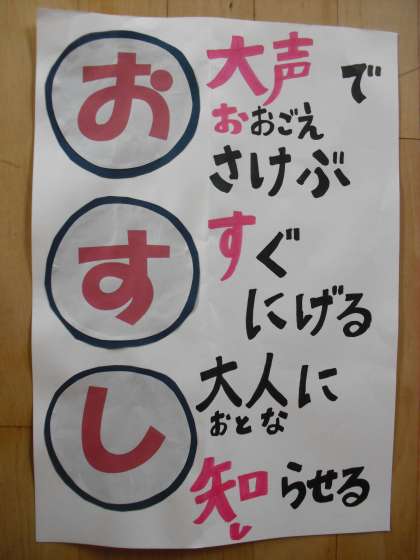 お
大声で
おおごえ
さけぶ
す
すぐ
にげる
し
大人に
おとな
知らせる
し